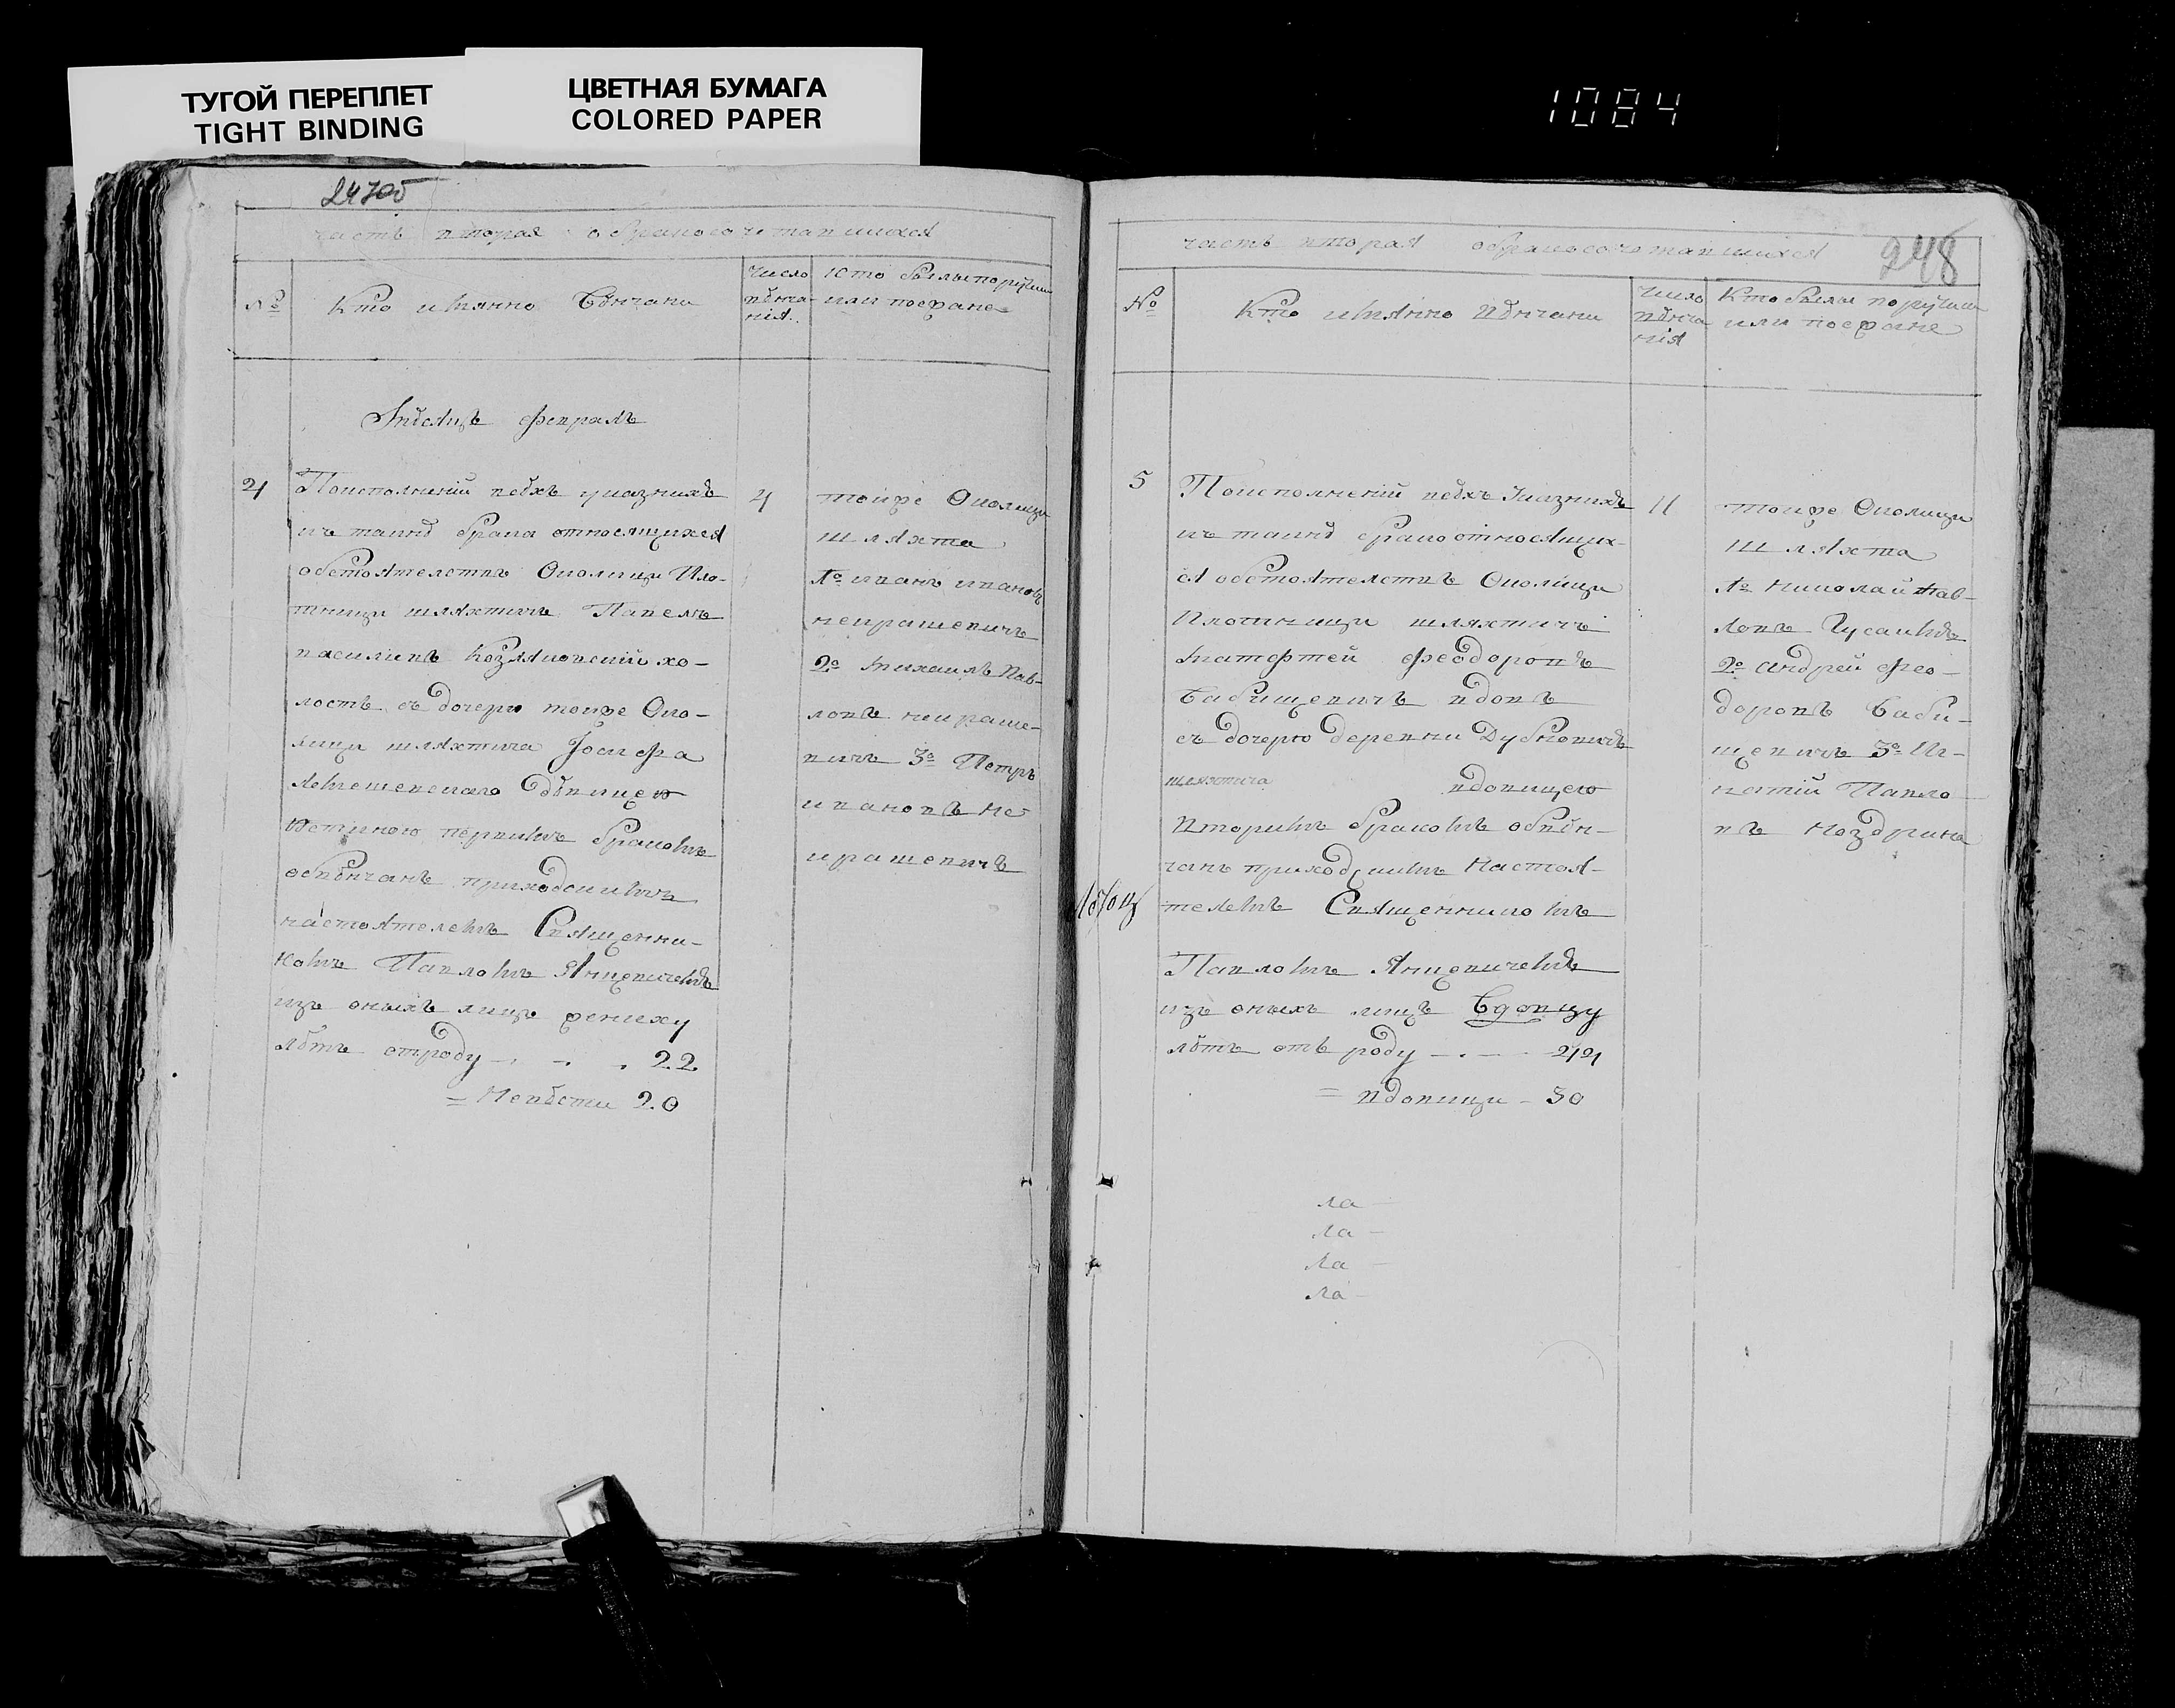 ТУГОЙ ПЕРЕПЛЕТ
TIGHT BINDING
ЦВЕТНАЯ БУМАГА
COLORED PAPER
1084
247об
часть вторая о бракосочетавшихся
№
Кто имянно Вѣнчани
Число вѣнча-нія.
Кто были поручики или посаженe
Мѣсяцъ февраль
4
Поисполненіи всѣхъ указнихъ
къ таинѣ брака относящихся
обстоятелствъ Околици Пло-
тници шляхтичь Павелъ
василивъ Козляковскій хо-
лостъ съ дочерю тойже Око-
лици шляхтича Іосифа
дѣвицею
первимъ бракомъ
обвѣнчанъ приходскимъ
настоятелемъ Священни-
комъ Павломъ Янцевичемъ
изъ оныхъ лицъ жениху
лѣтъ отроду 22
= Невѣсти 20
4
тойже Околици
шляхта
1º иванъ ивановъ
некрашевичъ
2º михаилъ Пав-
ловъ некраше-
вичъ 3º Петръ
ивановъ не-
крашевичъ
248
часть вторая о бракосочетавшихся
№
Кто имянно вѣнчани
Число вѣнча-нія
Кто были поручики
5
Поисполненіи всѣхъ Указнихъ
къ таинѣ брака относящих-
ся обстоятелствъ Околици
Плотници шляхтичъ
матфтей феодоровъ
Бабищевичъ вдовъ
съ дочерю деревни Дубновичъ
шляхтича вдовицею
вторимъ бракомъ обвѣн-
чанъ приходскимъ Настоя-
телемъ Священникомъ
Павломъ Янцевичемъ
изъ оныхъ лицъ Вдовцу
лѣтъ отъ роду 44
= вдовици - 30
11
тойже Околици
шляхта
1º Николай Пав-
ловъ Гусакъ
2º андрей фео-
доровъ Баби-
щевичъ 3º Иг-
натій Павло-
въ Ноздринъ
ла -
ла -
ла -
ла -